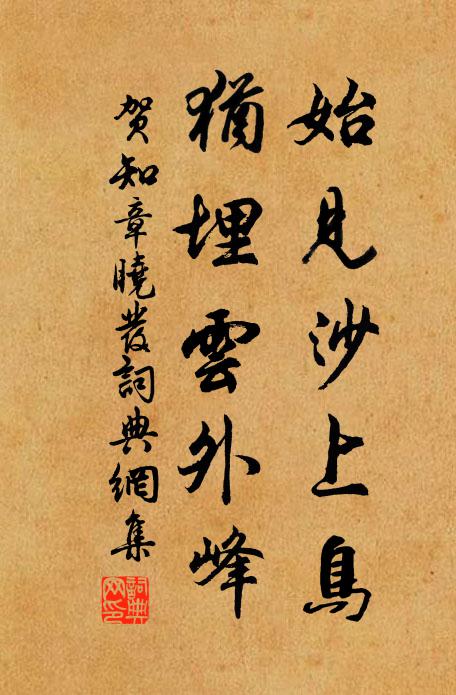 始見沙上鳥
猶埋雲外峰
賀知章曉發詞典網集
詞典網印